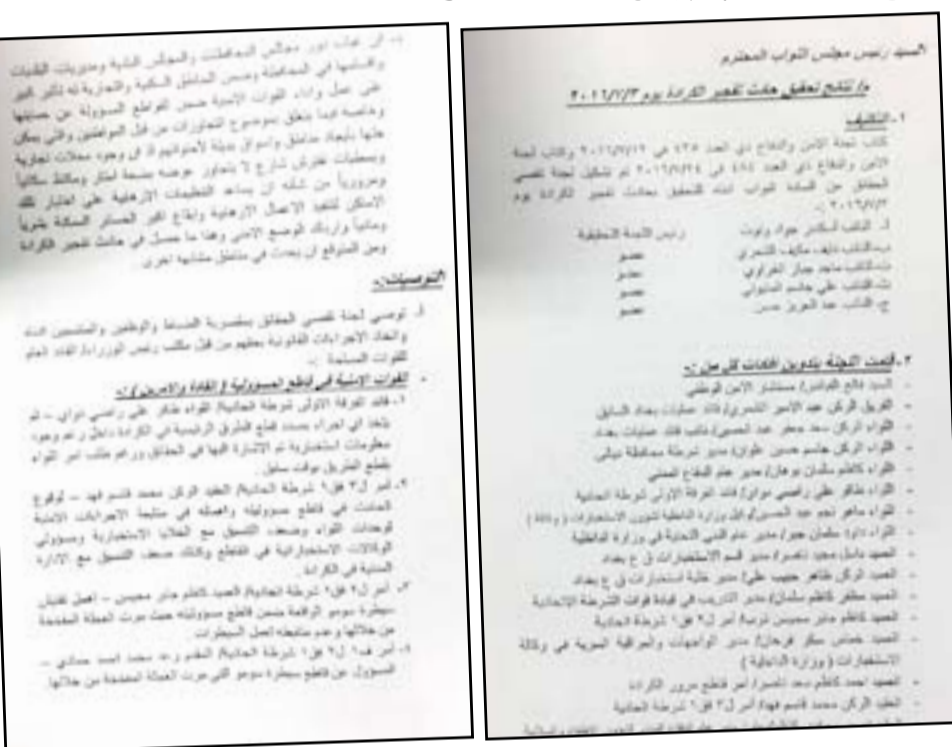 السيد رئيس مجلس النواب المحترم
م/ نتائج تحقيق حادث تفجير الكرادة يوم ٢٠١٦/٧/٣
١- التكليف
كتاب لجنة الامن والدفاع ذي العدد ٤٣٥ في ٢٠١٦/٧/١٢ وكتاب لجنة
الامن والدفاع ذي العدد ٤٨٤ في ٢٠١٦/٧/٢٤ تم تشكيل لجنة تقصي
الحقائق من السادة النواب ادناه للتحقيق بحادث تفجير الكرادة يوم
٢٠١٦/٧/٣ :-
أ- النائب اسكندر جواد وتوت رئيس اللجنة التحقيقية
ب- النائب نايف الشمري عضو
ت- النائب ماجد جبار الغراوي عضو
ث- النائب علي جاسم عضو
ج- النائب عبد العزيز حسن عضو
٢- قامت اللجنة بتدوين افادات كل من :-
- السيد فالح الفياض/ مستشار الامن الوطني
- الفريق الركن عبد الامير الشمري/ قائد عمليات بغداد السابق
- اللواء الركن سعد جعفر عبد الحسين/ نائب قائد عمليات بغداد
- اللواء الركن جاسم حسين علوان/ مدير شرطة محافظة ديالى
- اللواء كاظم سلمان بوهان/ مدير عام الدفاع المدني
- اللواء ظافر علي راضي دواي/ قائد الفرقة الاولى شرطة اتحادية
- اللواء ماهر نجم عبد الحسين/ وكيل وزارة الداخلية لشؤون الاستخبارات ( وكالة )
- اللواء داود سلمان جبر/ مدير عام في وزارة الداخلية
- العميد باسل مجيد ناصر/ مدير قسم الاستخبارات ق ع بغداد
- العميد الركن طاهر حبيب علي/ مدير خلية استخبارات ق ع بغداد
- العميد مظفر كاظم سلمان/ مدير التدريب في قيادة قوات الشرطة الاتحادية
- العميد كاظم جابر محيبس/ امر ل٢ فق١ شرطة اتحادية
- العميد خماس صكر فرحان/ مدير الواجهات والمراقبة السرية في وكالة
الاستخبارات ( وزارة الداخلية )
- العميد احمد كاظم سعد ناصر/ امر قاطع مرور الكرادة
- العقيد الركن محمد قاسم فهد/ أمر ل٣ فق١ شرطة اتحادية
ان غياب دور مجالس المحافظات والمجالس البلدية ومديريات البلديات
واقسامها في المحافظة وضمن المناطق السكنية والتجارية له تأثير كبير
على عمل واداء القوات الامنية ضمن القواطع المسؤولة عن حمايتها
وخاصة فيما يتعلق بموضوع التجاوزات من قبل المواطنين والتي يمكن
حلها بأيجاد مناطق واسواق بديلة لأحتوائهم اذ ان وجود محلات تجارية
وبسطيات تفترش شارع لا يتجاوز عرضه بضعة امتار ومكتظ سكانياً
ومرورياً من شأنه ان يساعد التنظيمات الارهابية على اختيار تلك
الاماكن لتنفيذ الاعمال الارهابية وايقاع اكبر الخسائر الممكنة بشرياً
ومادياً وارباك الوضع الامني وهذا ما حصل في حادث تفجير الكرادة
ومن المتوقع ان يحدث في مناطق مشابهة اخرى .
التوصيات:-
أ- توصي لجنة تقصي الحقائق بمقصرية الضباط والموظفين والمنتسبين ادناه
واتخاذ الاجراءات القانونية بحقهم من قبل مكتب رئيس الوزراء/ القائد العام
للقوات المسلحة :-
- القوات الامنية في قاطع المسؤولية ( القادة والامرين ) :-
١- قائد الفرقة الاولى شرطة اتحادية/ اللواء ظافر علي راضي دواي – لم
يتخذ اي اجراء بصدد قطع الطرق الرئيسية في الكرادة داخل رغم وجود
معلومات استخبارية تم الاشارة اليها في الحقائق ورغم طلب امر اللواء
بقطع الطريق بوقت سابق .
٢- أمر ل٣ فق١ شرطة اتحادية/ العقيد الركن محمد قاسم فهد – لوقوع
الحادث في قاطع مسؤوليته واهماله في متابعة الاجراءات الامنية
لوحدات اللواء وضعف التنسيق مع الخلايا الاستخبارية ومسؤولي
الوكالات الاستخباراتية في القاطع وكذلك ضعف التنسيق مع الادارة
المدنية في الكرادة .
٣- أمر ل٢ فق١ شرطة اتحادية/ العميد كاظم جابر محيبس – اهمل تفتيش
سيطرة سومر الواقعة ضمن قاطع مسؤوليته حيث مرت العجلة المفخخة
من خلالها وعدم متابعته لعمل السيطرات .
٤- أمر ف١ ل٢ فق١ شرطة اتحادية/ المقدم رعد محمد احمد حمادي –
المسؤول عن قاطع سيطرة سومر التي مرت العجلة المفخخة من خلالها.